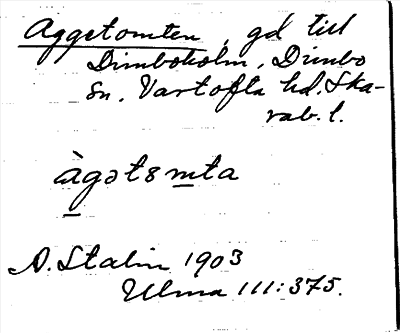 Aggetomten, gd till
Dimboholm, Dimbo
sn. Vartofta hd. Ska-
rab. l.
àgətꞷmta
A. Stalin 1903
Ulma 111:375.